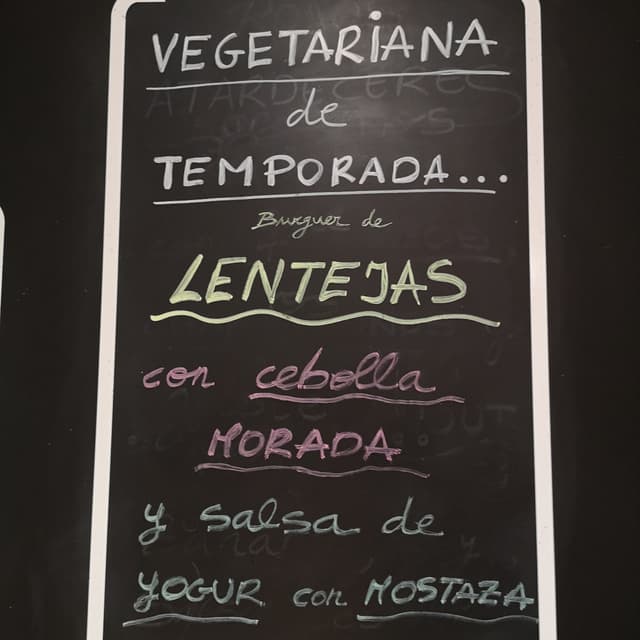 VEGETARIANA
de
TEMPORADA...
Burguer de
LENTEJAS
con cebolla
MORADA
y salsa de
YOGUR con MOSTAZA